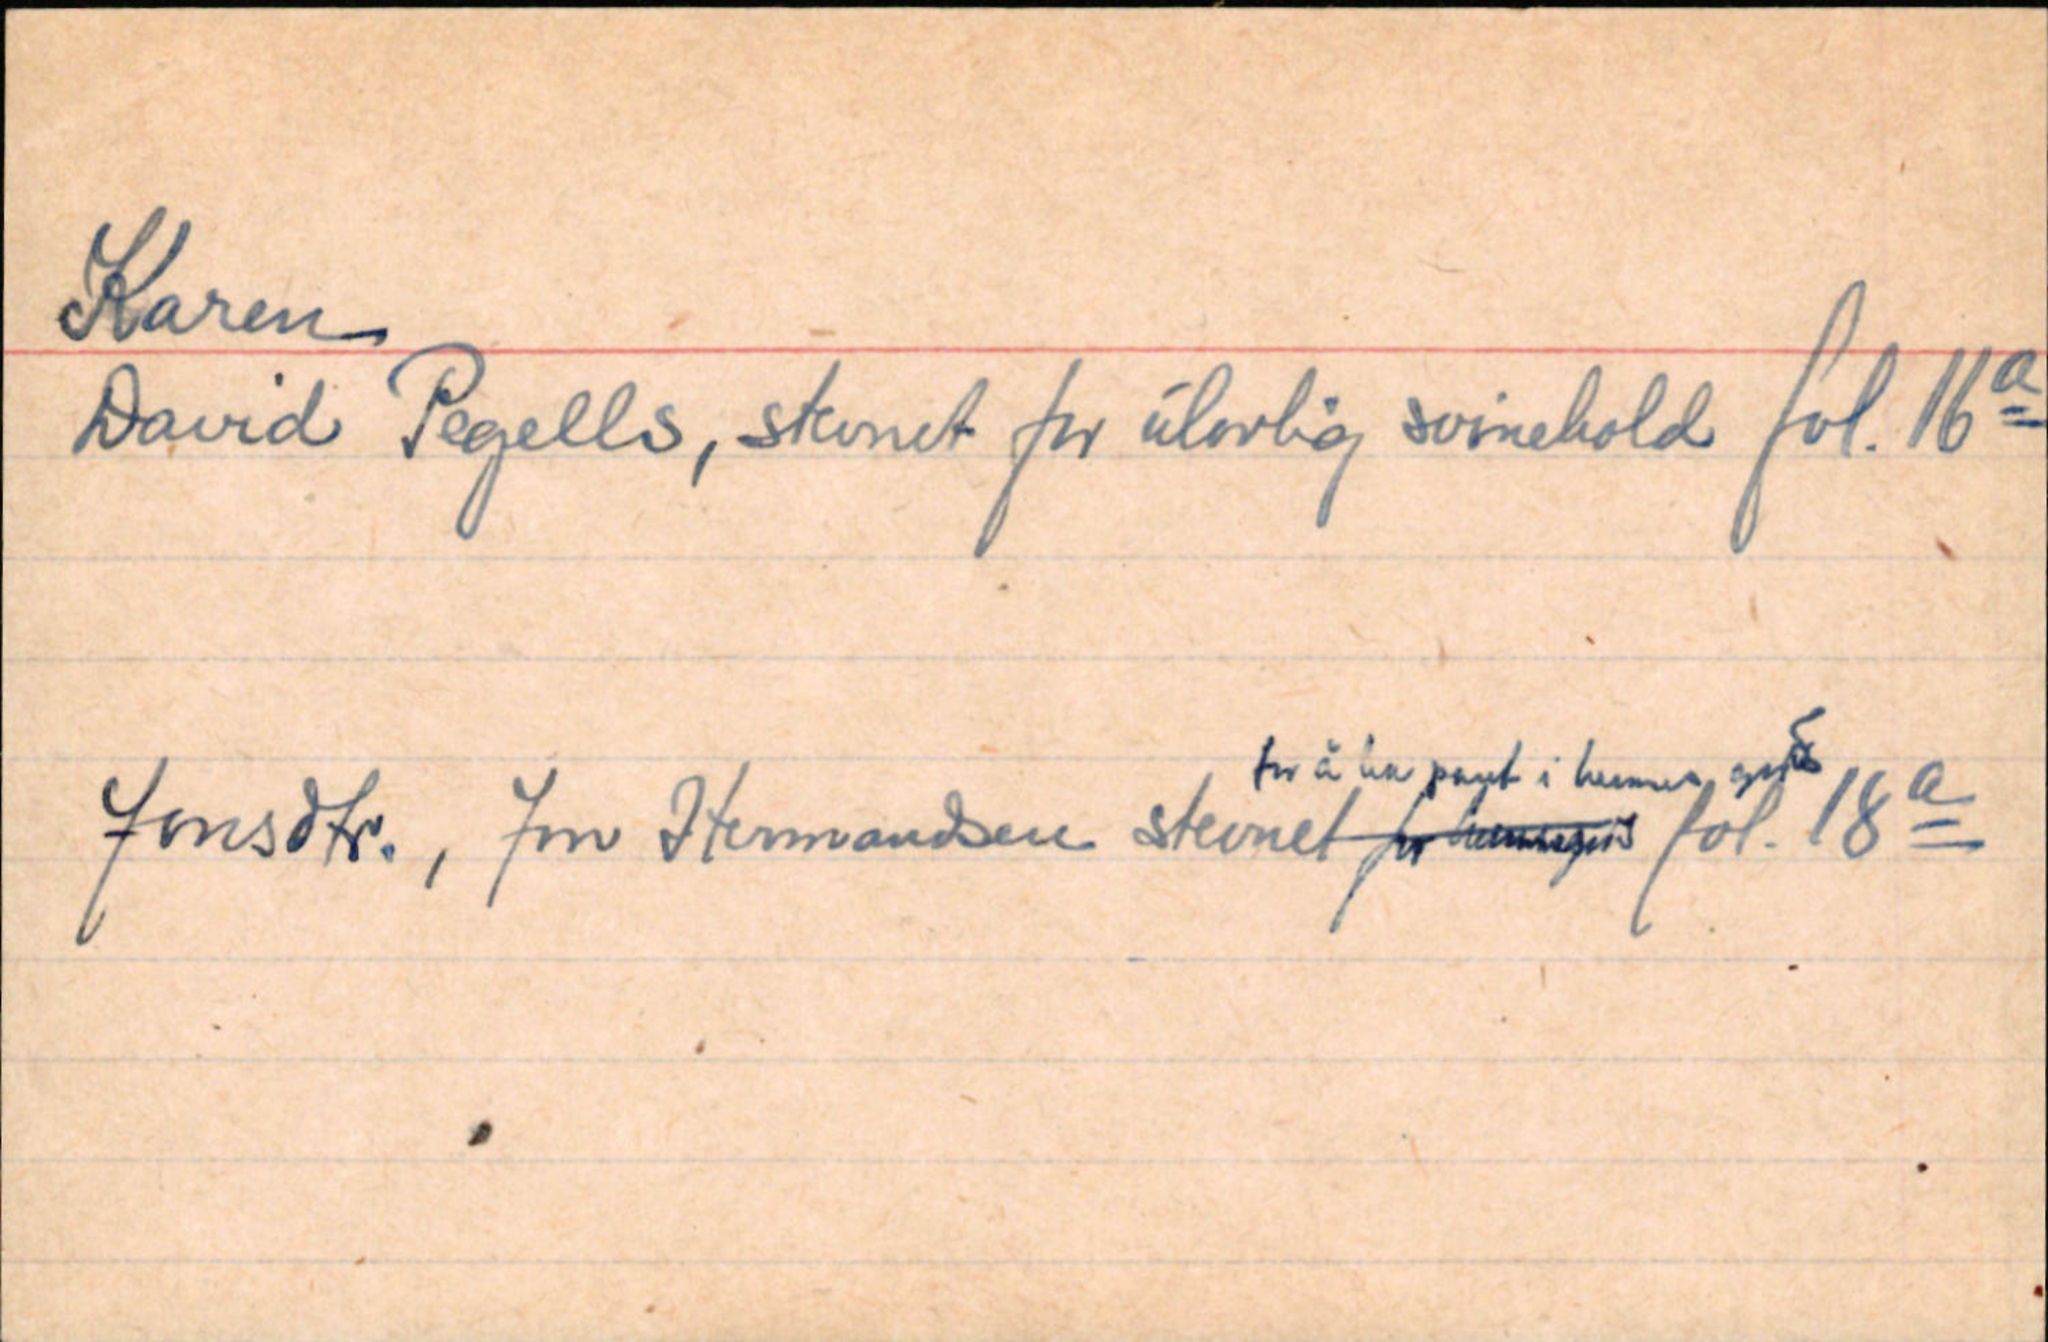 Karen
David Pegells, stevnet for ulovlig svinehold fol. 16a
for å ha pant i hennes gods
Jonsdtr., Jon Hermandsen stevnet for hennes fol. 18a